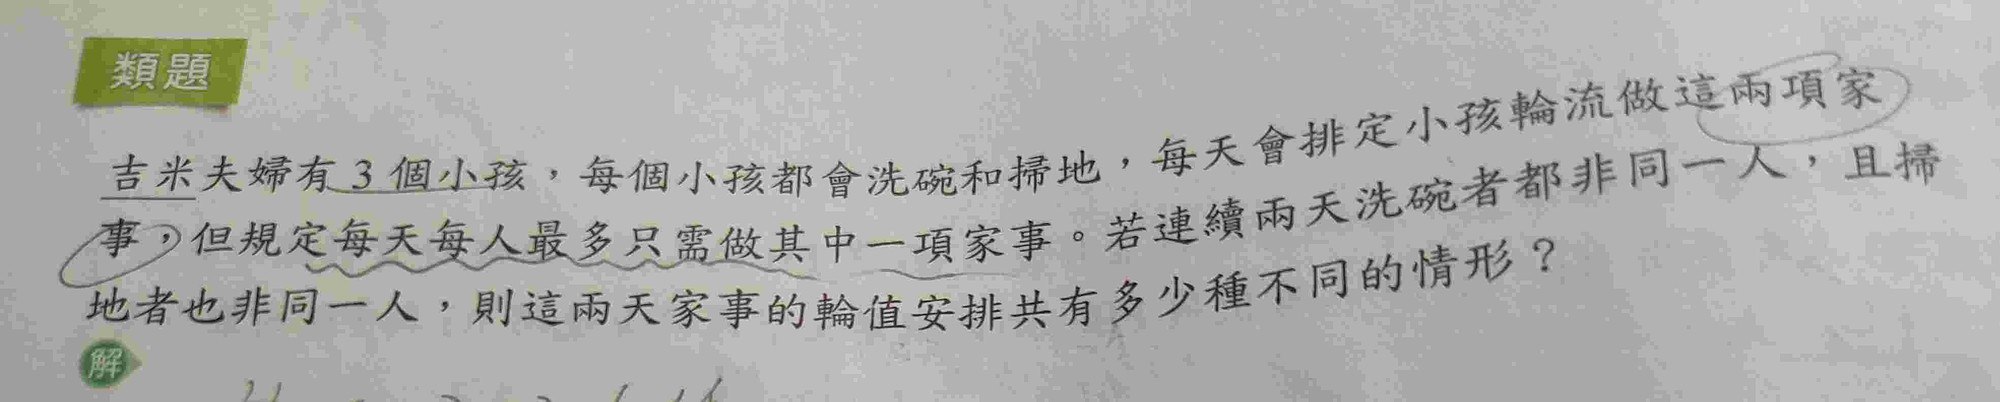 類題
吉米夫婦有3個小孩，每個小孩都會洗碗和掃地，每天會排定小孩輪流做這兩項家
事，但規定每天每人最多只需做其中一項家事。若連續兩天洗碗者都非同一人，且掃
地者也非同一人，則這兩天家事的輪值安排共有多少種不同的情形？
解